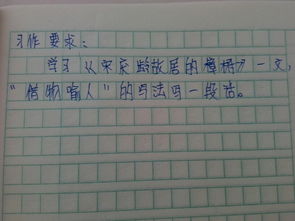 习作要求：
学习《宋庆龄故居的樟树》一文，
“借物喻人”的写法写一段话。